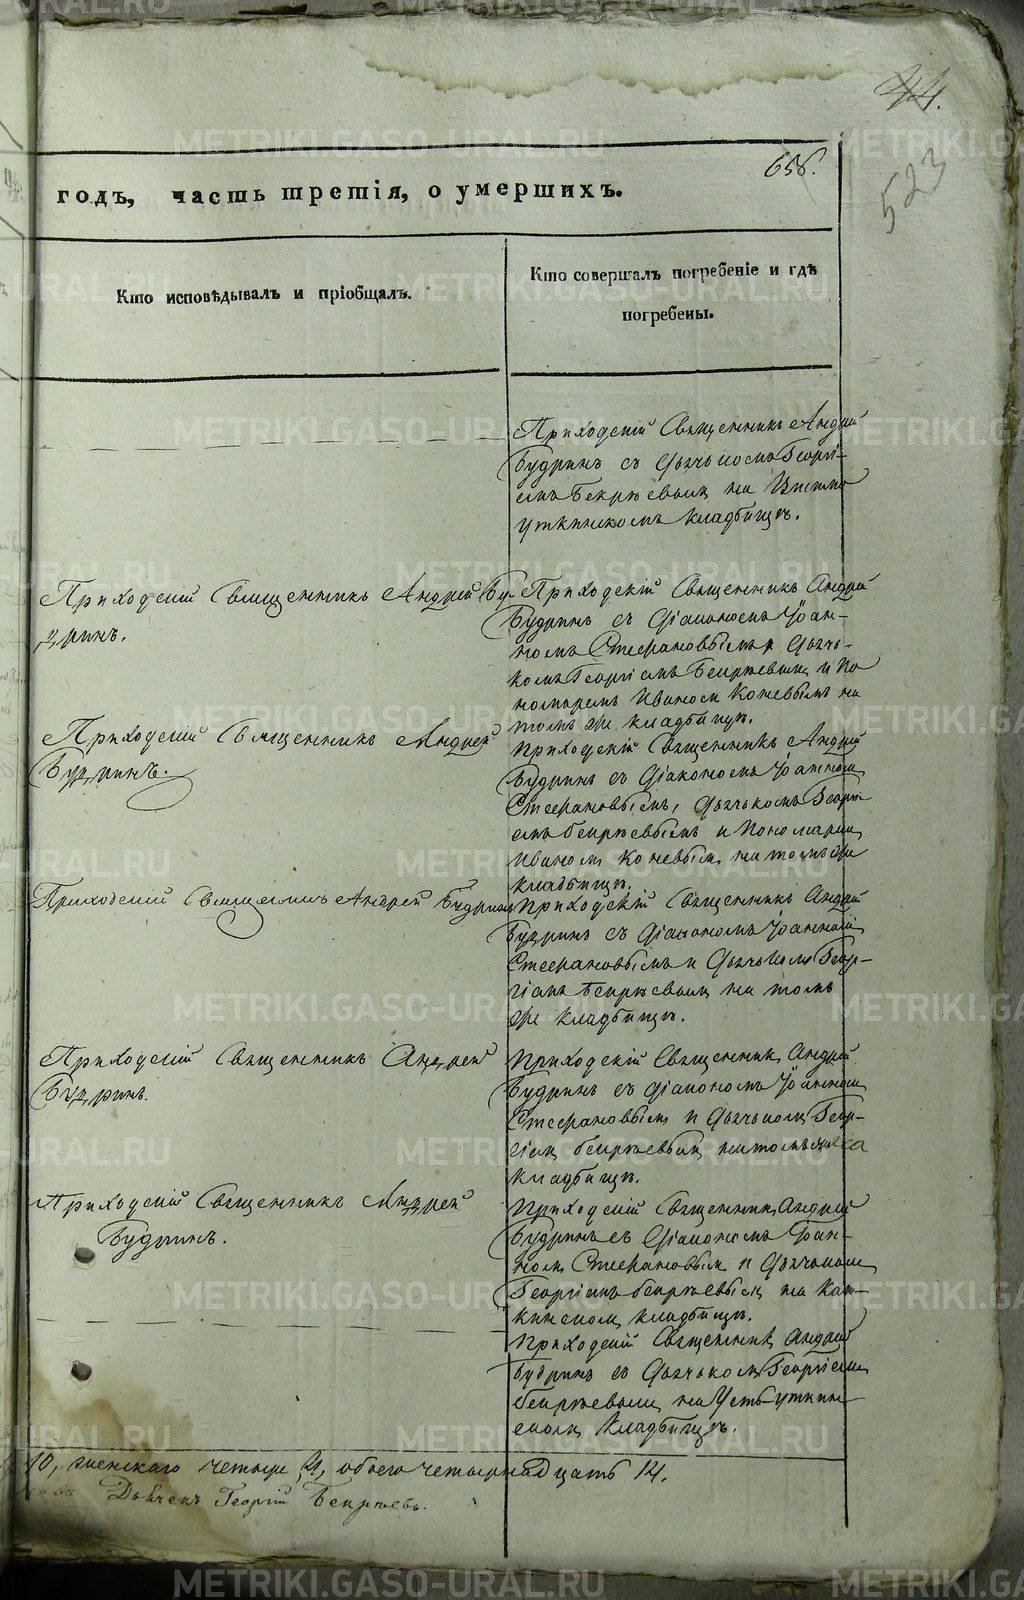 44.
656.
523
годъ, часть третія, о умершихъ.
Кто исповѣдывалъ и пріобщалъ.
Кто совершалъ погребеніе и гдѣ
погребены.
Приходскій Священникъ Андрей
Будринъ съ Дьячькомъ Георгі-
емъ Бекрѣевымъ на
уткинскомъ кладбищѣ.
Приходскій Священникъ Андрей Бу-
дринъ.
Приходскій Священникъ Андрей
Будринъ съ Діакономъ Іоан-
номъ Стефановымъ Дьячь-
комъ Георгіемъ Бекрѣевымъ и По
номаремъ Иваномъ Коневымъ на
томъ же кладбищѣ.
Приходскій Священникъ Андрей
Будринъ.
Приходскій Священникъ Андрей
Будринъ съ Діакономъ Іоанномъ
Стефановымъ, Дьячькомъ Георгі-
емъ Бекрѣевымъ и Пономаремъ
Иваномъ Коневымъ на томъ же
кладбищѣ.
Приходскій Священникъ Андрей Будринъ
Приходскій Священникъ Андрей
Будринъ съ Діакономъ Іоанномъ
Стефановымъ и Дьячькомъ Геор-
гіемъ Бекрѣевымъ на томъ
же кладбищѣ.
Приходскій Священникъ Андрей
Будринъ.
Приходскій Священникъ Андрей
Будринъ съ Діакономъ Іоанномъ
Стефановымъ и Дьячькомъ Геор-
гіемъ Бекрѣевымъ на томъ же
кладбищѣ.
Приходскій Священникъ Андрей
Будринъ.
Приходскій Священникъ Андрей
Будринъ съ Діакономъ Іоан-
номъ Стефановымъ и Дьячькомъ
Георгіемъ Бекрѣевымъ на Кам-
кинскомъ кладбищѣ.
Приходскій Священникъ Андрей
Будринъ съ Дьячькомъ Георгіемъ
Бекрѣевымъ на Усть-уткин-
скомъ Кладбищѣ.
10, женскаго четыре 4, обоего четырнадцать 14.
Дьячекъ Георгій Бекрѣевъ.
METRIKI.GASO-URAL.RU